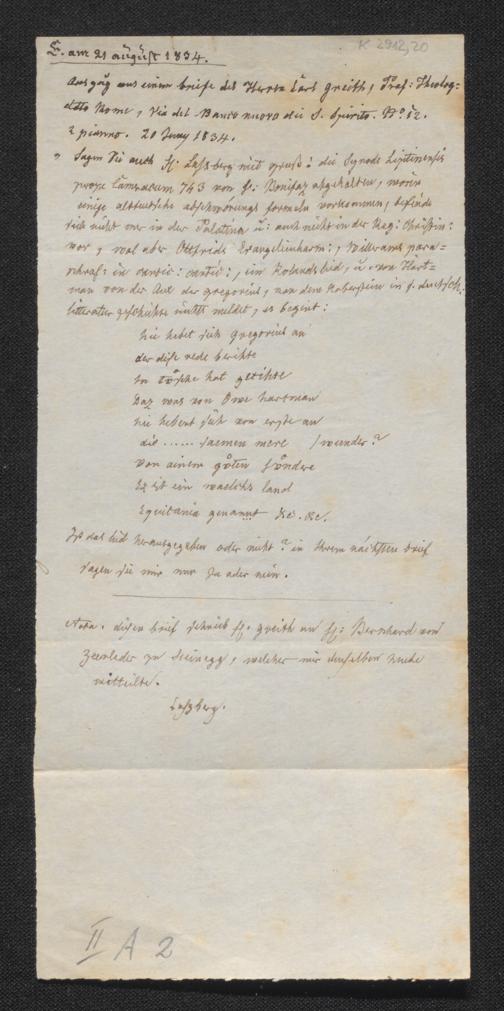 E. am 21 august 1834.
K 2912,20
Auszug aus einem briefe des Herrn Carl Greith, Prof: Theolog:
dato Rome, Via del Banco nuovo di S. Spirito. No. 52.
2 piano. 20 Juny 1834.
" Sagen Sie auch H: Laßberg mit gruß: die Synode Liptinensis
prope Cameracum 743 von H: Bonifaz abgehalten, worin
einige altdeutsche abschwörungs formeln vorkommen, befinde
sich nicht nur in der Palatina u: auch nicht in der Reg: Christin:
vor; wol aber Ottfrids Evangelienharm:, Willerams para=
phras: in cantic: cantic:, ein Rolandslied, u. von Hart=
man von der Aue der gregorius, von dem Koberstein in s. deutsch:
litteratur geschichte nichts meldet, es beginnt:
hie hebet sich gregorius an
der dise rede berihte
In tůsche hat getihte
Daz was von Owe hartman
hie hebent sich von erste an
die ...... saemen mere /wunder?
Von einem gůten sůndere
Ez ist ein waelchs land
Equitania genannt &c. &c.
Ist das lied herausgegeben oder nicht? in Ihrem nächsten brief
sagen sie mir nur Ja oder nein.
Nota. disen brief schrieb H. greith an H: Bernhard von
Zeerleder zu Steinegg, welcher mir denselben heute
mitteilte.
Laßberg.
II A 2